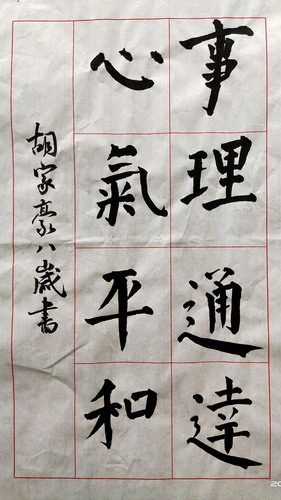 事理通達
心氣平和
胡家豪八歲書